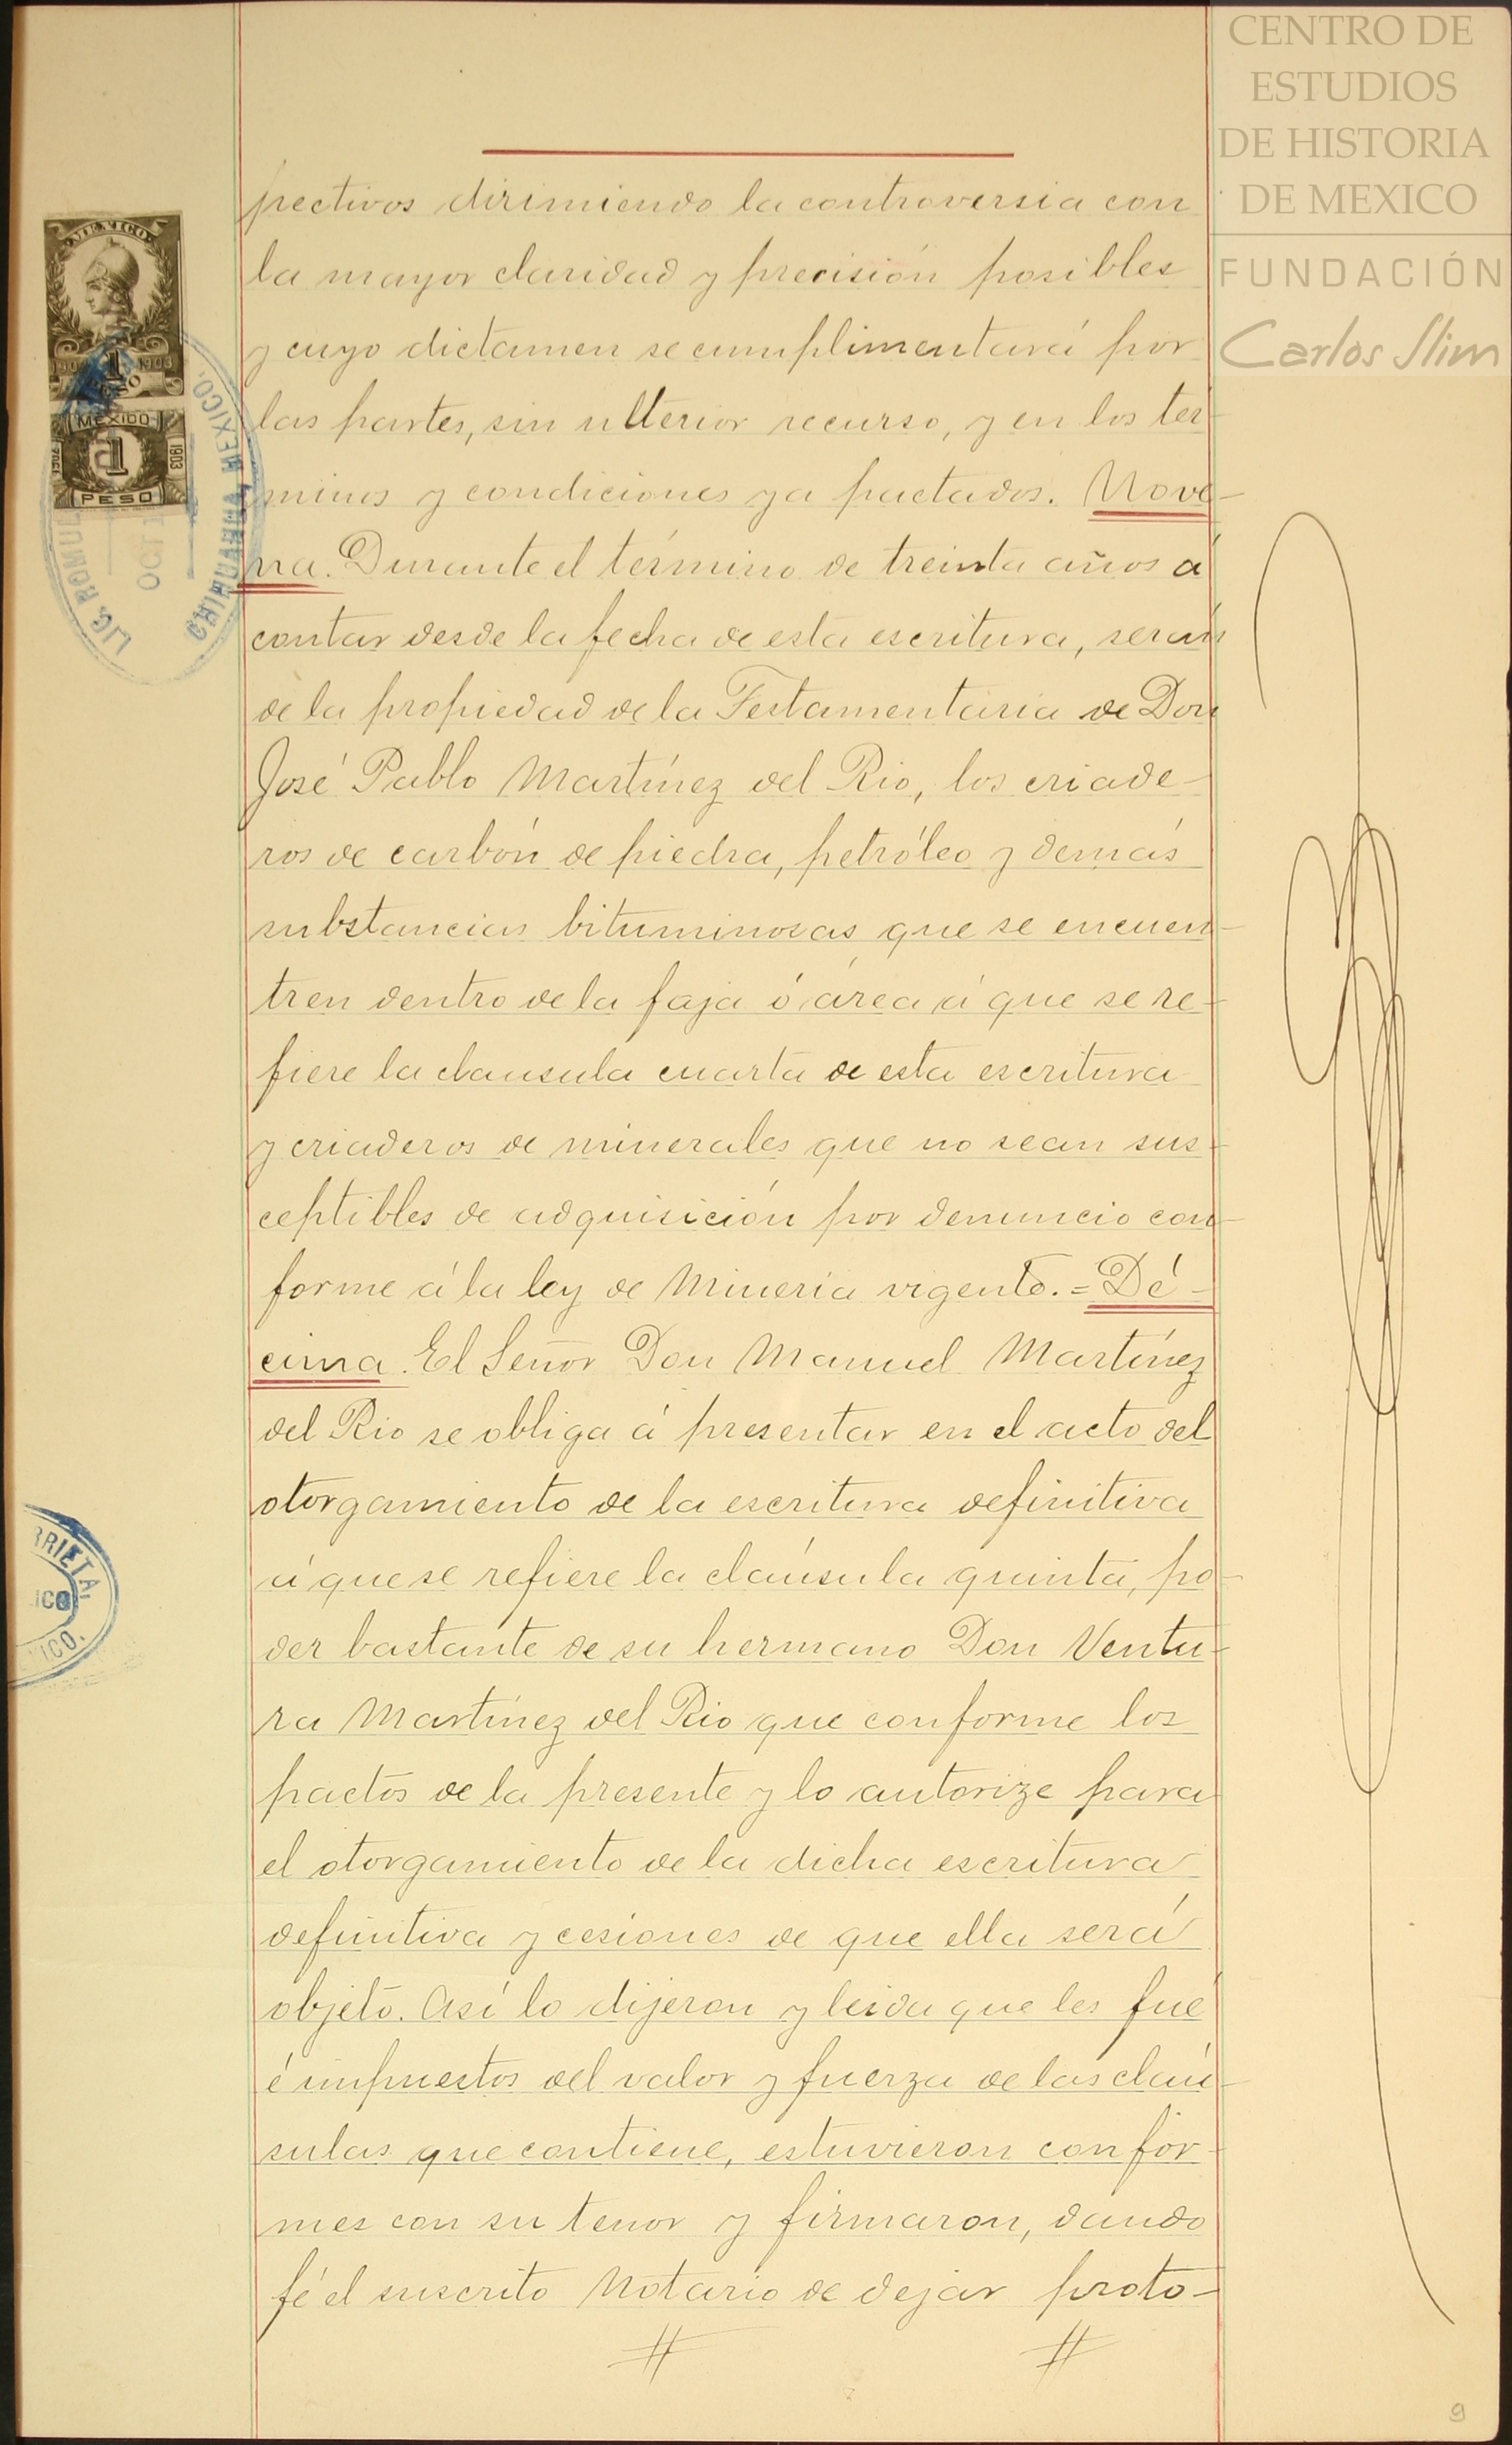 CENTRO DE
ESTUDIOS
DE HISTORIA
DE MEXICO
FUNDACIÓN
Carlos Slim
pectivos dirimiendo la controversia con
la mayor claridad y precisión posibles
y cuyo dictamen se cumplimentará por
las partes, sin ulterior recurso, y en los tér-
minos y condiciones ya pactados. Nove-
na. Durante el término de treinta años á
contar desde la fecha de esta escritura, serán
de la propiedad de la Testamentaria de Don
José Pablo Martínez del Rio, los criade-
ros de carbón de piedra, petróleo y demás
substancias bituminosas que se encuen-
tren dentro de la faja ó área á que se re-
fiere la clausula cuarta de esta escritura
y criaderos de minerales que no sean sus-
ceptibles de adquisición por denuncio con-
forme á la ley de Minería vigente. = Dé-
cima. El Señor Don Manuel Martínez
del Rio se obliga á presentar en el acto del
otorgamiento de la escritura definitiva
á que se refiere la claúsula quinta, po-
der bastante de su hermano Don Ventu-
ra Martínez del Rio que conforme los
pactos de la presente y lo autorize para
el otorgamiento de la dicha escritura
definitiva y cesiones de que ella será
objeto. Así lo dijeron y leida que les fué
é impuestos del valor y fuerza de las claú-
sulas que contiene, estuvieron confor-
mes con su tenor y firmaron, dando
fé el suscrito Notario de dejar proto-
MEXICO
1903
MEXICO
1
1903
PESO
LIC. ROMUL
OCT 1
CHIHUAHUA, MEXICO.
RRIETA
ICO
ICO.
9